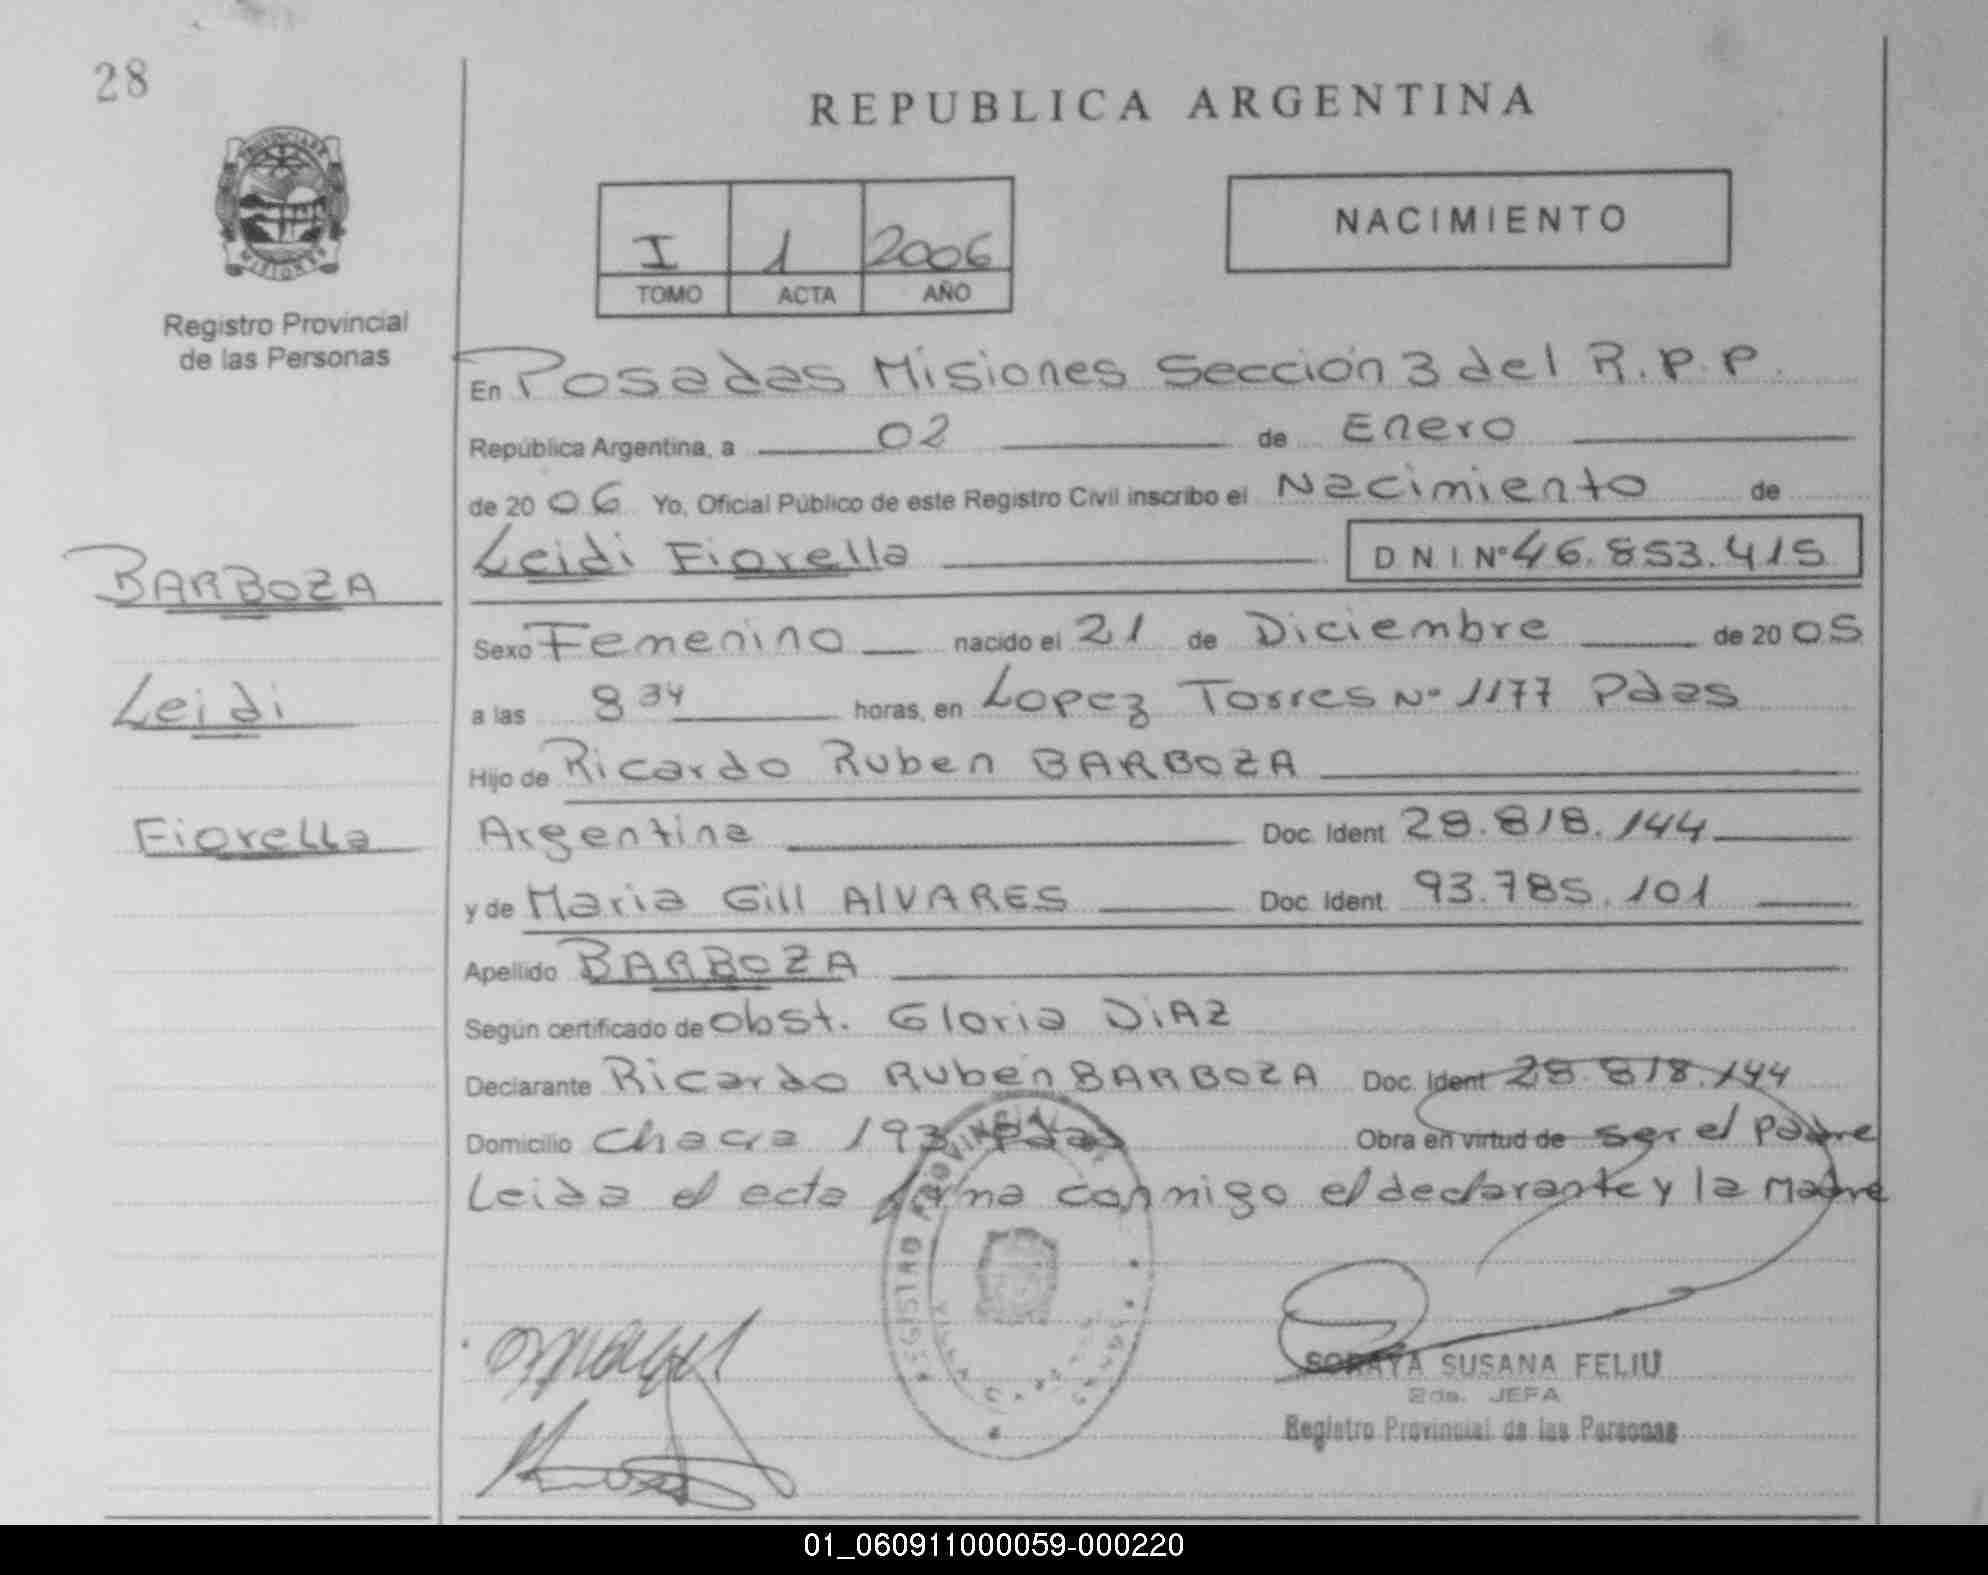 28
REPUBLICA ARGENTINA
PROVINCIA DE
MISIONES
Registro Provincial
de las Personas
I 1 2006
TOMO ACTA AÑO
NACIMIENTO
En Posadas Misiones Sección 3 del R.P.P.
República Argentina, a 02 de Enero
de 2006 Yo, Oficial Público de este Registro Civil inscribo el Nacimiento de
Leidi Fiorella DNI Nº 46.853.415
BARBOZA
Leidi
Fiorella
Sexo Femenino nacido el 21 de Diciembre de 2005
a las 8 34 horas, en Lopez Torres Nº 1177 Pdas
Hijo de Ricardo Ruben BARBOZA
Argentina Doc. Ident. 28.818.144
y de Maria Gill AlVARES Doc. Ident. 93.785.101
Apellido BARBOZA
Según certificado de Obst. Gloria DiAZ
Declarante Ricardo Ruben BARBOZA Doc. Ident 28.818.144
Domicilio Chacra 193 Pdas Obra en virtud de ser el Padre
Leida el acta firma conmigo el declarante y la Madre
REGISTRO PROVINCIAL
SORAYA SUSANA FELIU
2da. JEFA
Registro Provincial de las Personas
01_060911000059-000220